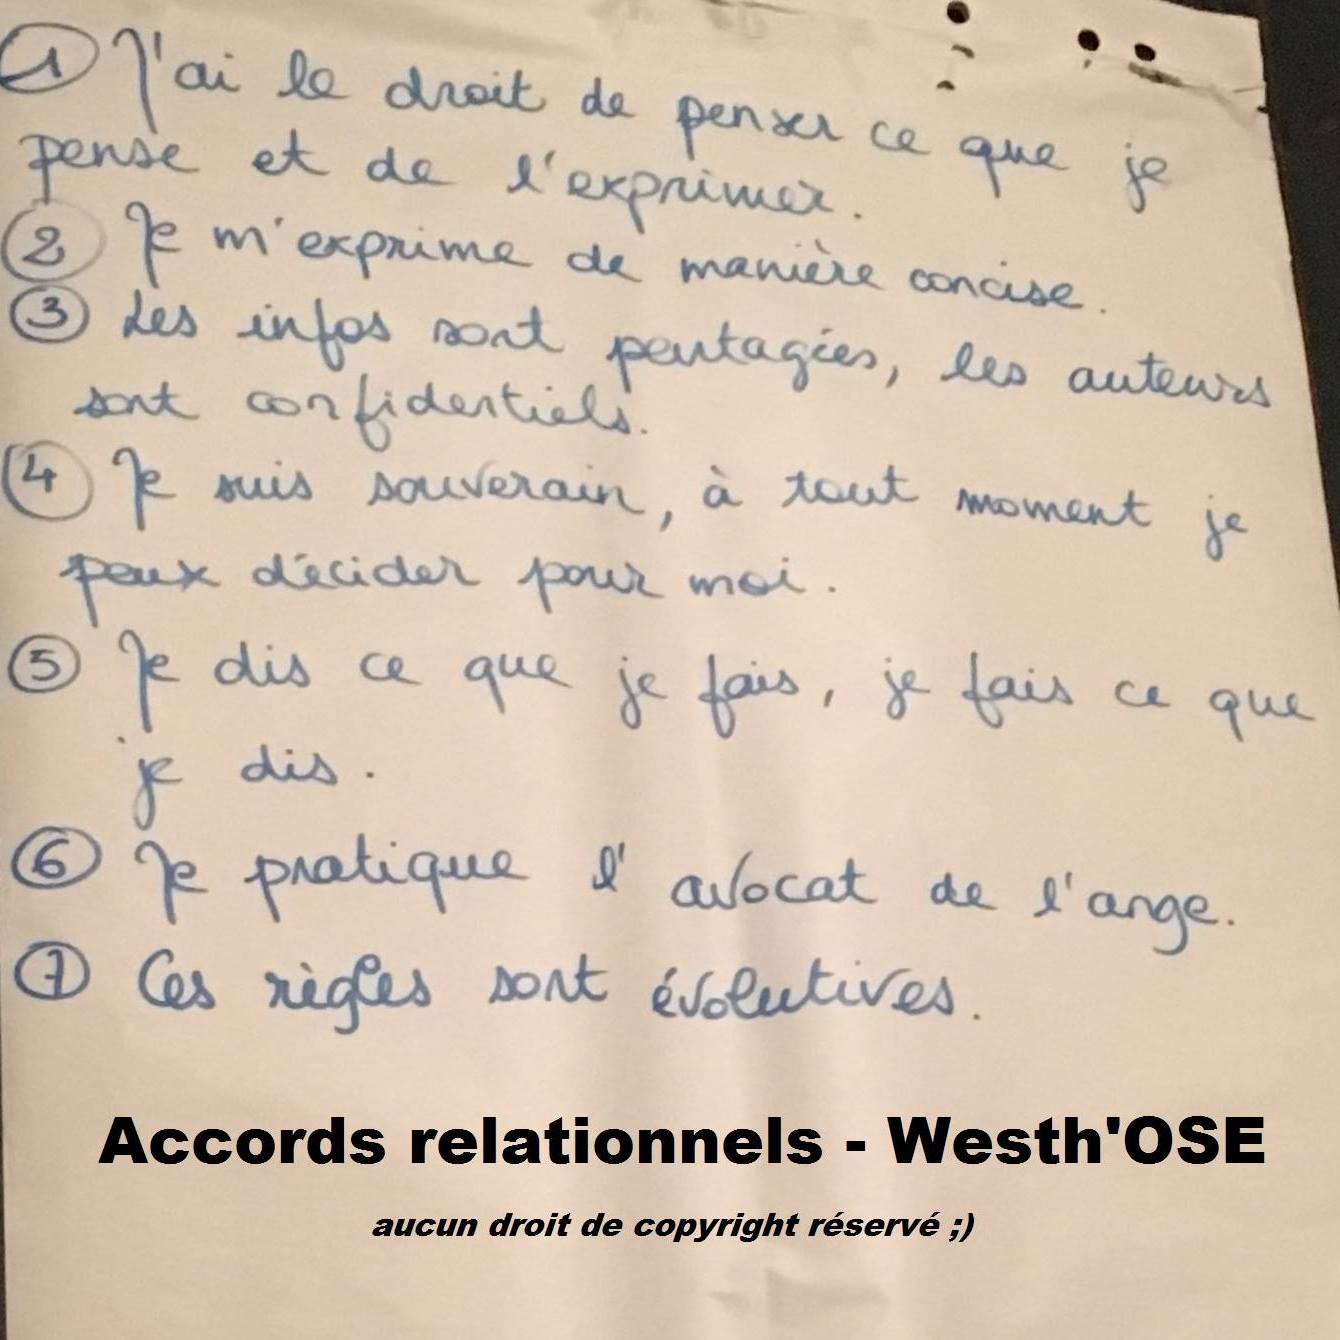 1 J'ai le droit de penser ce que je
pense et de l'exprimer.
2 Je m'exprime de manière concise.
3 Les infos sont partagées, les auteurs
sont confidentiels.
4 Je suis souverain, à tout moment je
peux décider pour moi.
5 Je dis ce que je fais, je fais ce que
je dis.
6 Je pratique l'avocat de l'ange.
7 Ces règles sont évolutives.
Accords relationnels - Westh'OSE
aucun droit de copyright réservé ;)